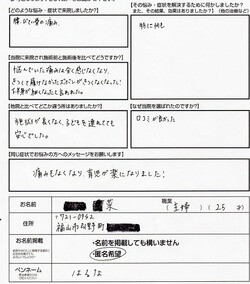 【どのような悩み・症状で来院しましたか?】
腰、
の痛み
【その症状を解決するために何かしましたか?
また、その結果、効果はありましたか?(他の治療など)】
特に何も
【当院に来院され施術前と施術後を比べてどうですか?】
悩んでいた痛みは全く感じなくなり、
きつくて履けなかったズボンがきつくなくなった!
下半身が細くなったと言われた。
【他院と比べてどこか違う所はありましたか?】
が長くなく、子どもを連れてても
安心でした。
【なぜ当院を選ばれたのですか?】
口コミが良かった
【同じ症状でお悩みの方へのメッセージをお願いします】
痛みもなくなり、育児が楽になりました!
お名前
菜
職業
(主婦) (25才)
住所
〒721-0962
福山市
町
お名前掲載
・名前を掲載しても構いません
・匿名希望
ペンネーム
はるな